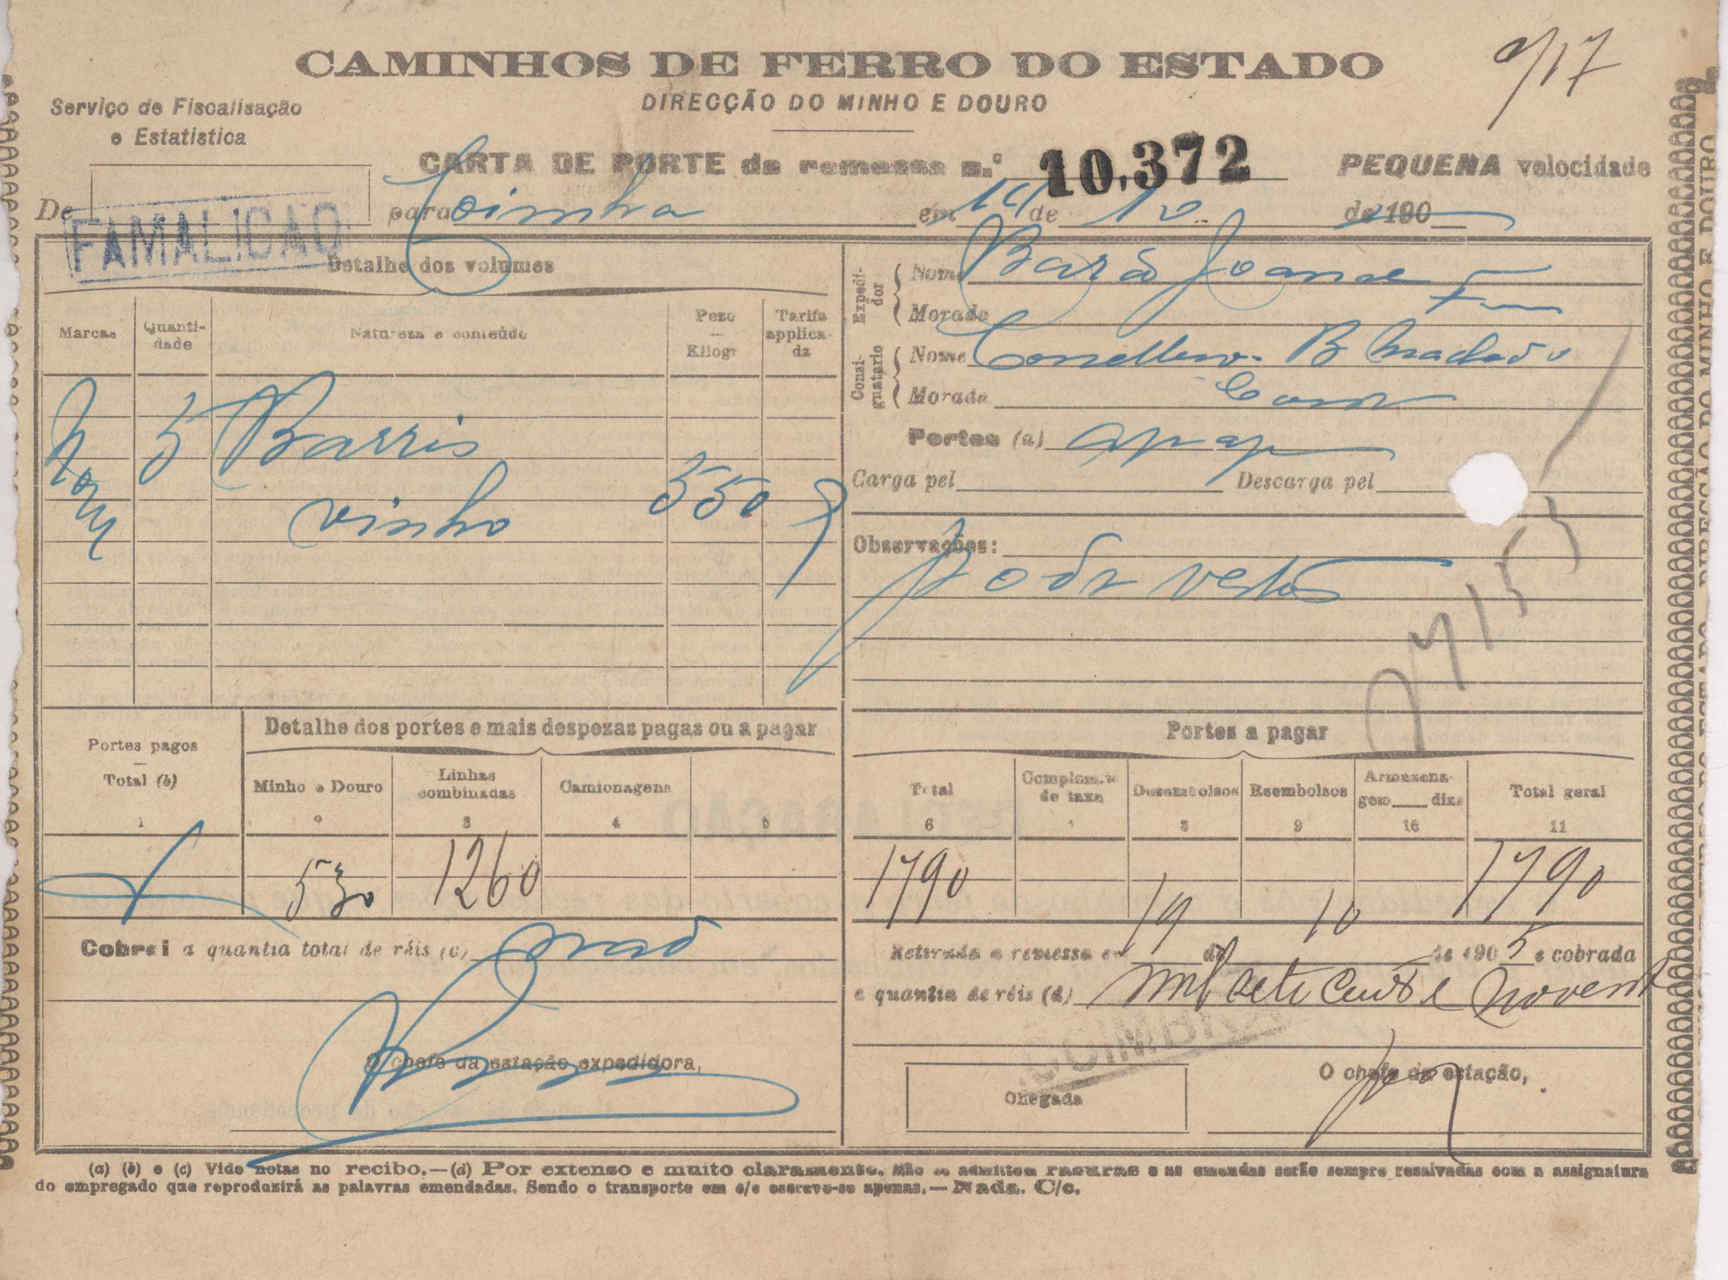 CAMINHOS DE FERRO DO ESTADO
DIRECÇÃO DO MINHO E DOURO
Serviço de Fiscalisação
e Estatistica
CARTA DE PORTE da remessa n.º 10.372 PEQUENA velocidade
De FAMALICÃO para Coimbra em 14 de 10 de 190
Detalhe dos volumes
Marcas
Quanti-
dade
Natureza e conteúdo
Pezo
—
Kilogr
Tarifa
applica-
da
5 Barris
vinho 550
Expedi-
dor
Nome Barão Joane
Morada
Consi-
gnatario
Nome Conselheiro B Machado
Morada
Portes (a) a pagar
Carga pel Descarga pel
Observações:
Portes pagos
—
Total (b)
1
Detalhe dos portes e mais despezas pagas ou a pagar
Minho e Douro
2
Linhas
combinadas
3
Camionagens
4
5
530 1260
Portes a pagar
Total
6
Complem.to
de taxa
7
Desembolsos
8
Reembolsos
9
Armazena-
gem dias
10
Total geral
11
1790 1790
Cobrei a quantia total de réis (c)
O chefe da estação expedidora,
Retirada a remessa em 19 de 10 de 1905 e cobrada
a quantia de réis (d) mil sete centos e noventa
Chegada
O chefe da estação,
(a) (b) e (c) Vide notas no recibo.—(d) Por extenso e muito claramente. Não se admittem rasuras e as emendas serão sempre resalvadas com a assignatura
do empregado que reproduzirá as palavras emendadas. Sendo o transporte em c/c escreve-se apenas.—Nada. C/c.